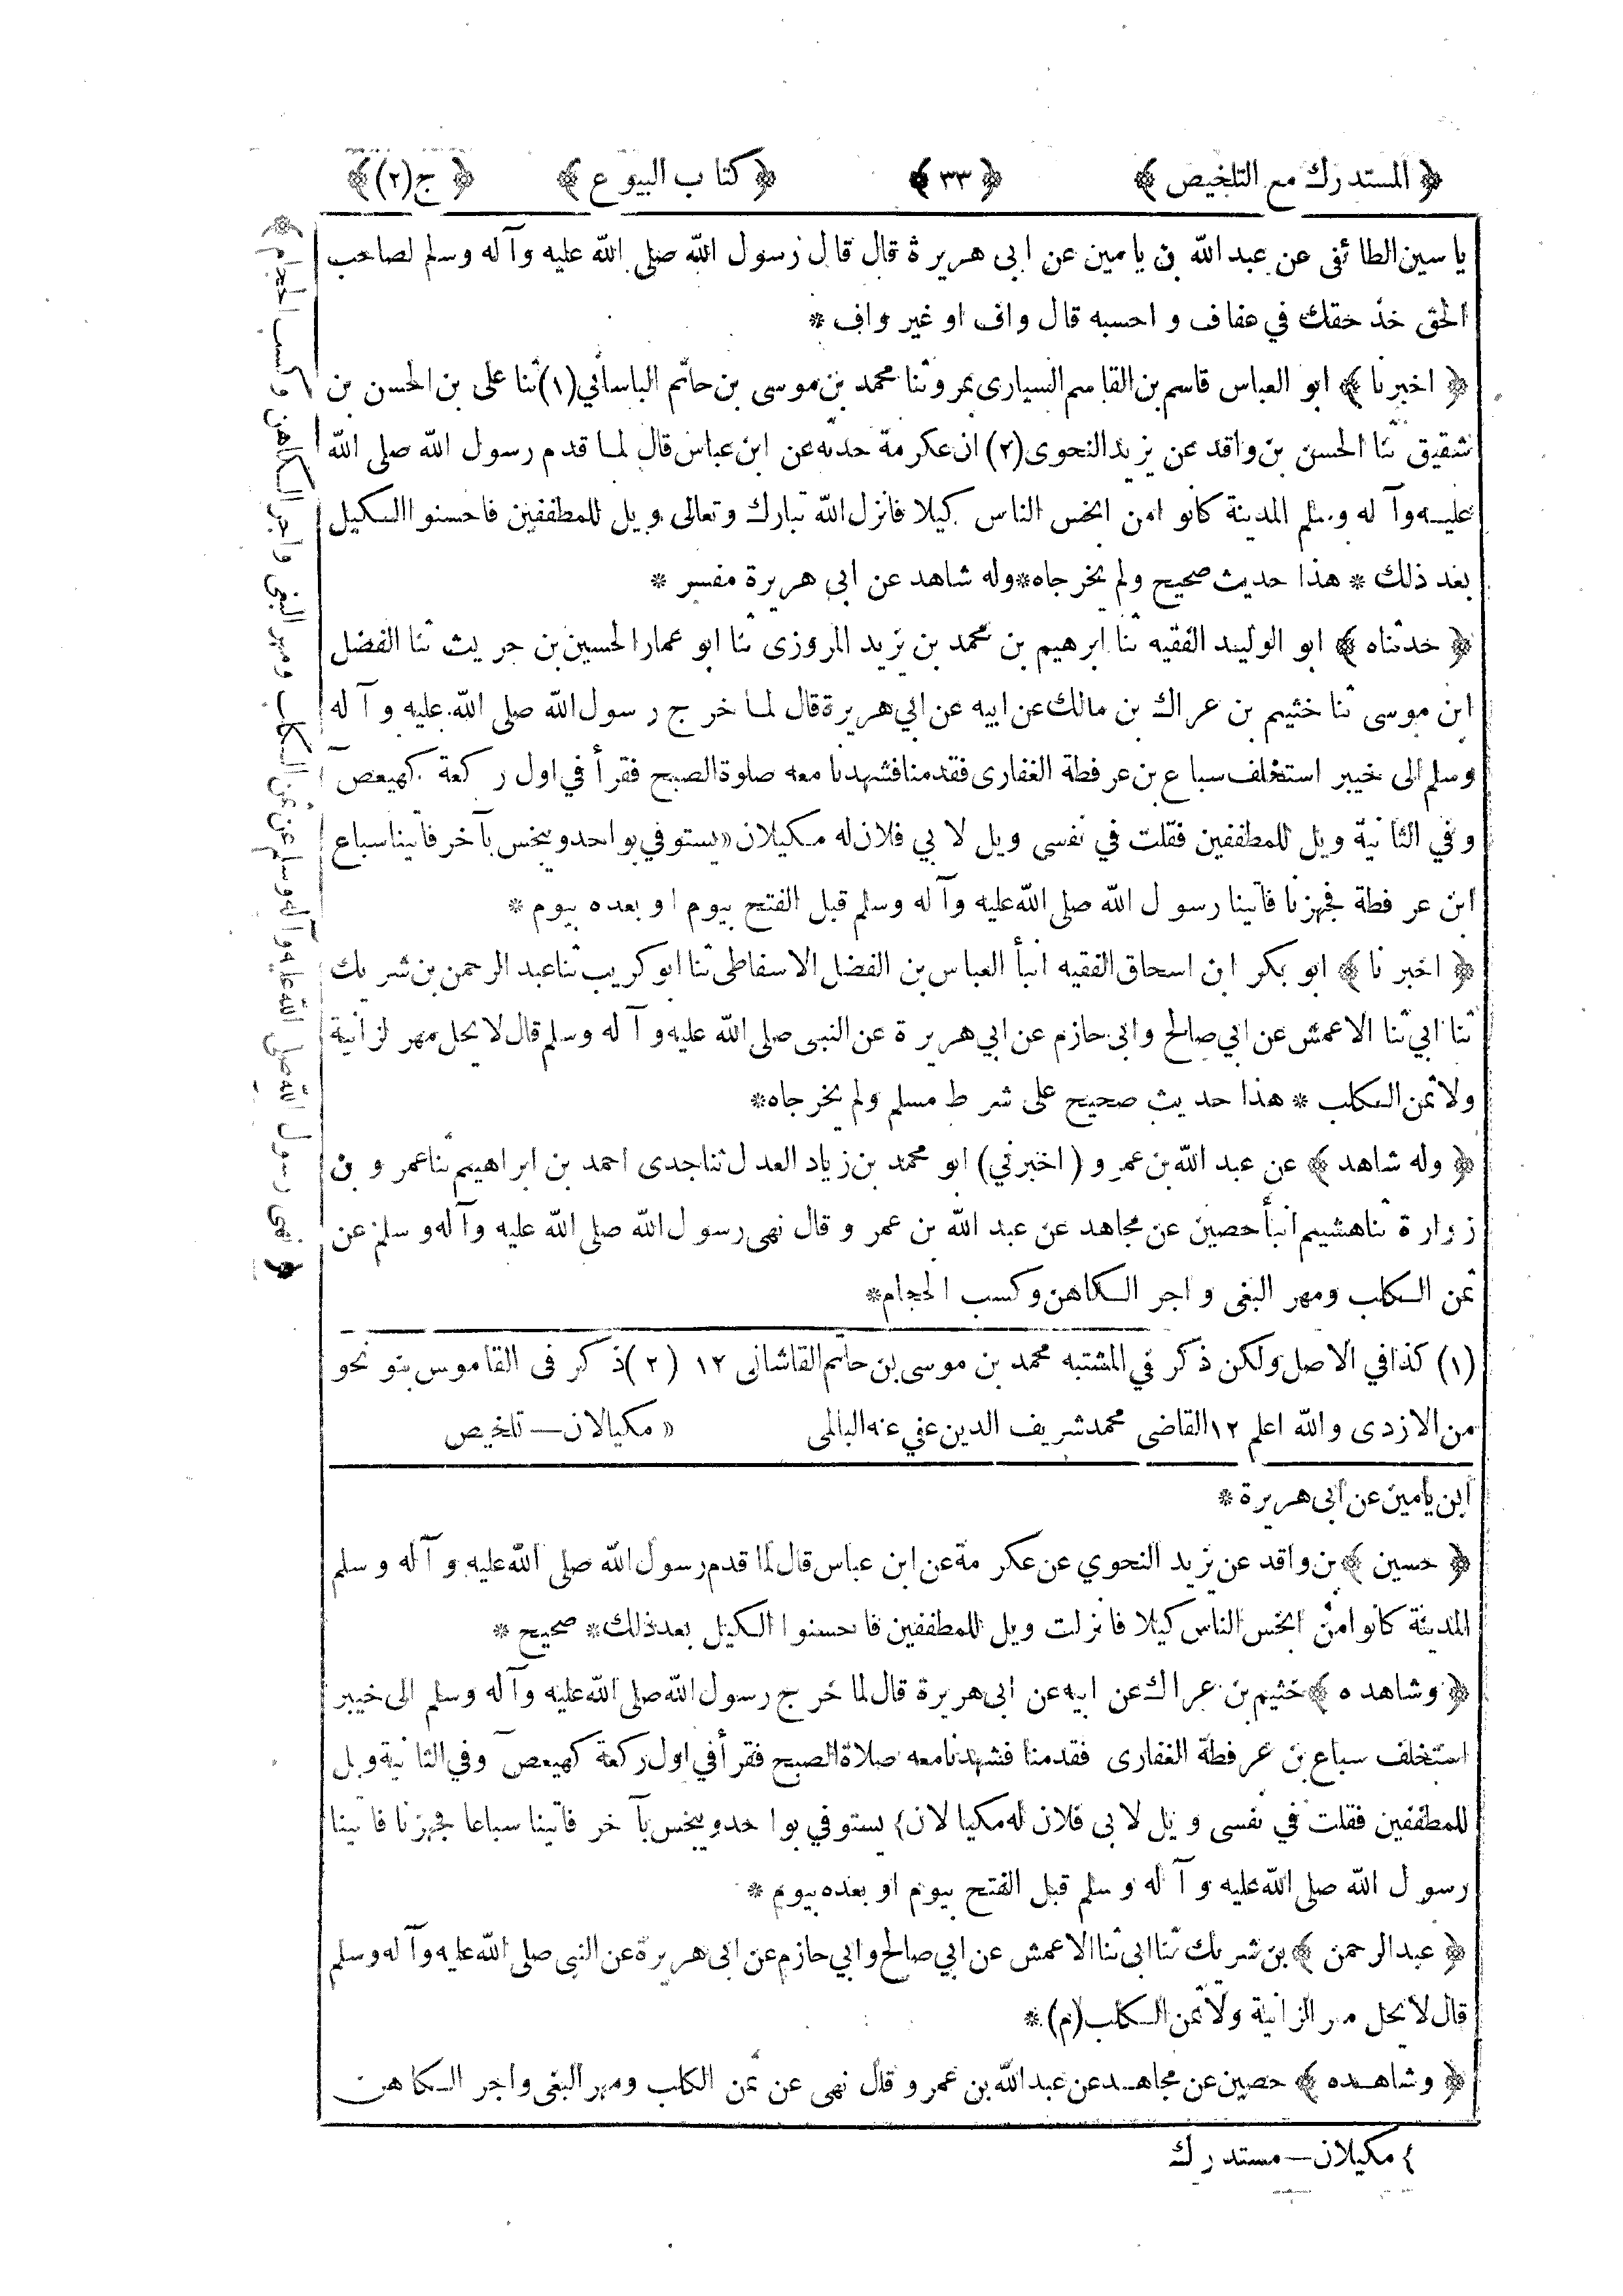 ﴿ المستدرك مع التلخيص ﴾ ﴿ ٣٣ ﴾ ﴿ كتاب البيوع ﴾ ﴿ ج(٢) ﴾
ياسين الطائفى عن عبد الله بن يامين عن ابى هريرة قال قال رسول الله صلى الله عليه وآله وسلم لصاحب
الحق خذ حقك في عفاف و احسبه قال واف او غير واف *
﴿ اخبرنا ﴾ ابو العباس قاسم بن القاسم السيارى بمرو ثنا محمد بن موسى بن حاتم الباساني (١) ثنا على بن الحسن بن
شقيق ثنا الحسن بن واقد عن يزيد النحوى (٢) ان عكرمة حدثه عن ابن عباس قال لما قدم رسول الله صلى الله
عليه وآله وسلم المدينة كانوا من ابخس الناس كيلا فانزل الله تبارك وتعالى ويل للمطففين فاحسنوا الكيل
بعد ذلك * هذا حديث صحيح ولم يخرجاه * وله شاهد عن ابى هريرة مفسر *
﴿ حدثناه ﴾ ابو الوليد الفقيه ثنا ابرهيم بن محمد بن يزيد المروزى ثنا ابو عمار الحسين بن حريث ثنا الفضل
ابن موسى ثنا خثيم بن عراك بن مالك عن ابيه عن ابي هريرة قال لما خرج رسول الله صلى الله عليه وآله
وسلم الى خيبر استخلف سباع بن عرفطة الغفارى فقدمنا فشهدنا معه صلوة الصبح فقرأ في اول ركعة كهيعص
وفي الثانية ويل للمطففين فقلت في نفسى ويل لابي فلان له مكيلان « يستوفي بواحد ويبخس بآخر فاتينا سباع
ابن عرفطة فجهزنا فاتينا رسول الله صلى الله عليه وآله وسلم قبل الفتح بيوم او بعده بيوم *
﴿ اخبرنا ﴾ ابو بكر ابن اسحاق الفقيه انبأ العباس بن الفضل الاسفاطى ثنا ابو كريب ثنا عبد الرحمن بن شريك
ثنا ابي ثنا الاعمش عن ابي صالح وابى حازم عن ابي هريرة عن النبى صلى الله عليه وآله وسلم قال لا يحل مهر لزانية
ولا ثمن الكلب * هذا حديث صحيح على شرط مسلم ولم يخرجاه *
﴿ وله شاهد ﴾ عن عبد الله بن عمرو (اخبرني) ابو محمد بن زياد العدل ثنا جدى احمد بن ابراهيم ثنا عمرو بن
زرارة ثنا هشيم انبأ حصين عن مجاهد عن عبد الله بن عمرو قال نهى رسول الله صلى الله عليه وآله وسلم عن
ثمن الكلب ومهر البغى واجر الكاهن وكسب الحجام *
﴿ نهى رسول الله صلى الله عليه وآله وسلم عن ثمن الكلب ومهر البغى واجر الكاهن وكسب الحجام ﴾
(١) كذا في الاصل ولكن ذكر في المشتبه محمد بن موسى بن حاتم القاشانى ١٢ (٢) ذكر فى القاموس بنو نحو
من الازدى والله اعلم ١٢ القاضى محمد شريف الدين عفي عنه البالمى « مكيالان — تلخيص
ابن يامين عن ابى هريرة *
﴿ حسين ﴾ بن واقد عن يزيد النحوي عن عكرمة عن ابن عباس قال لما قدم رسول الله صلى الله عليه وآله وسلم
المدينة كانوا من ابخس الناس كيلا فانزلت ويل للمطففين فاحسنوا الكيل بعد ذلك * صحيح *
﴿ وشاهده ﴾ خثيم بن عراك عن ابيه عن ابى هريرة قال لما خرج رسول الله صلى الله عليه وآله وسلم الى خيبر
استخلف سباع بن عرفطة الغفارى فقدمنا فشهدنا معه صلاة الصبح فقرأ في اول ركعة كهيعص وفي الثانية ويل
للمطففين فقلت في نفسى ويل لابى فلان له مكيالان } يستوفي بواحد ويبخس بآخر فاتينا سباعا فجهزنا فاتينا
رسول الله صلى الله عليه وآله وسلم قبل الفتح بيوم او بعده بيوم *
﴿ عبد الرحمن ﴾ بن شريك ثنا ابى ثنا الاعمش عن ابي صالح وابي حازم عن ابى هريرة عن النبى صلى الله عليه وآله وسلم
قال لا يحل مهر الزانية ولا ثمن الكلب (م) *
﴿ وشاهده ﴾ حصين عن مجاهد عن عبد الله بن عمرو قال نهى عن ثمن الكلب ومهر البغى واجر الكاهن
} مكيلان — مستدرك